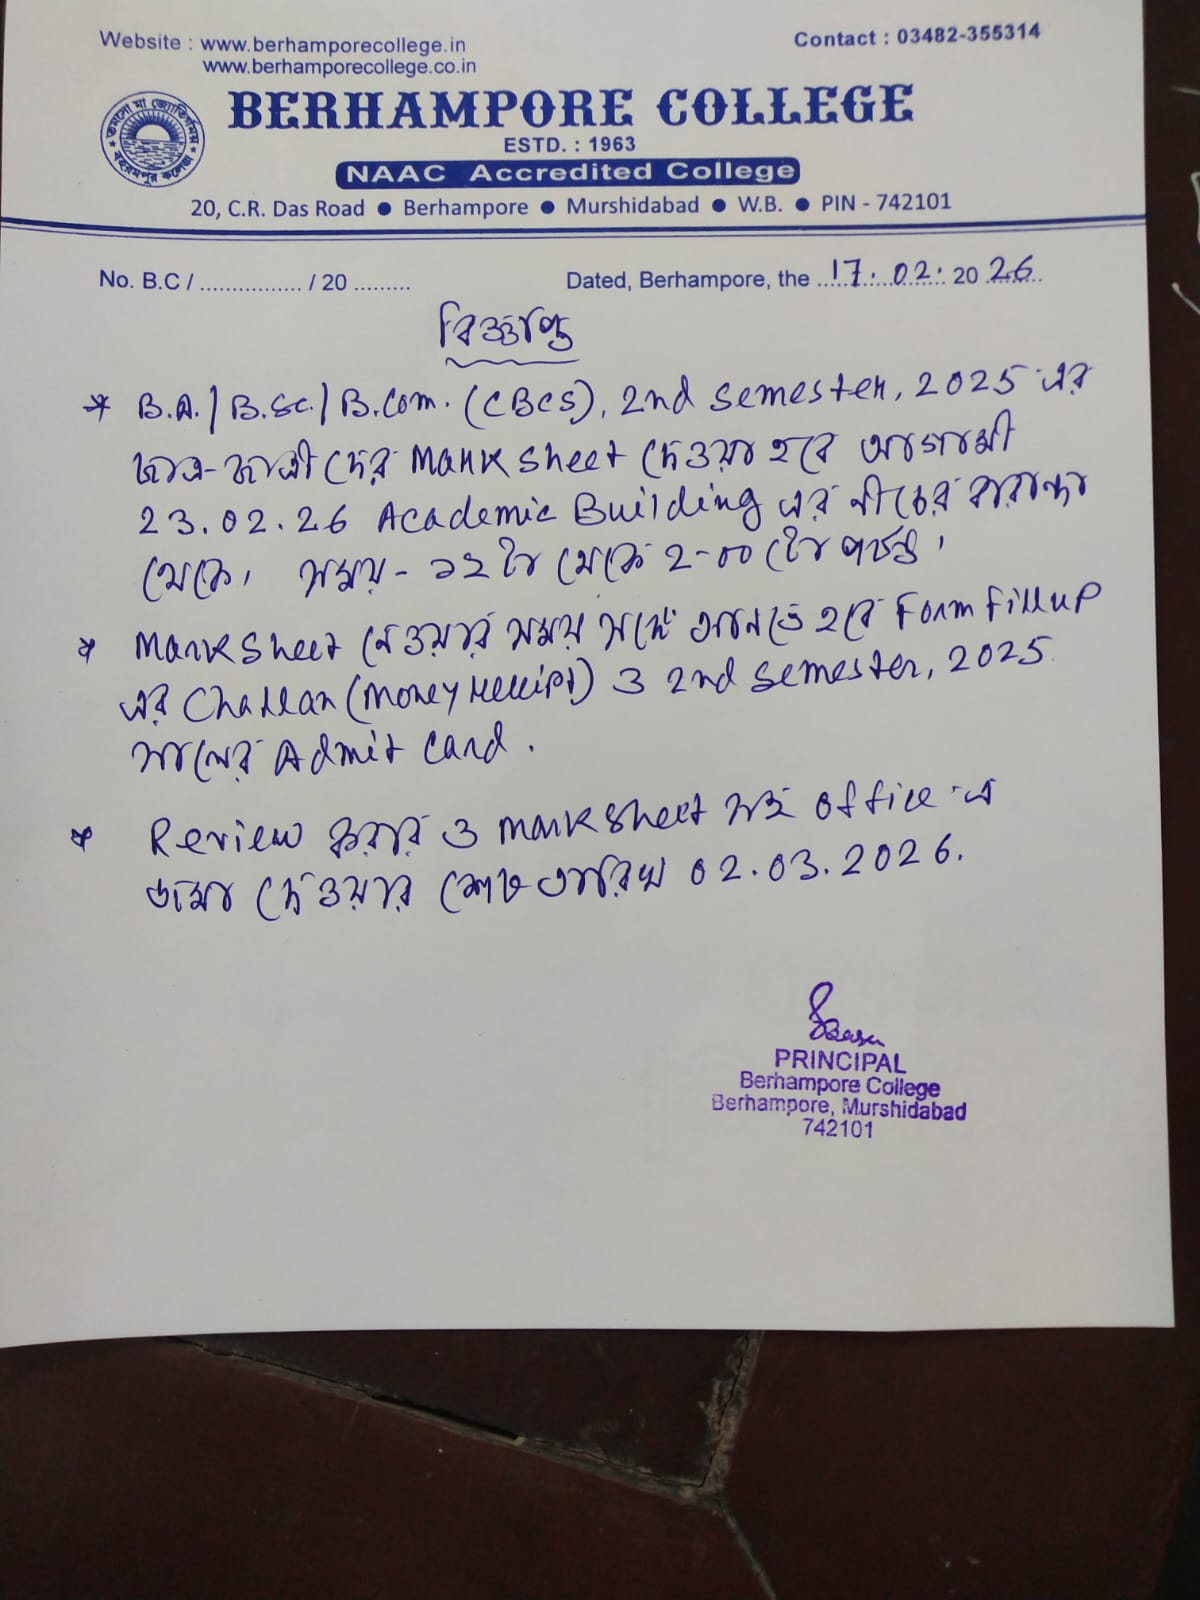 Website : www.berhamporecollege.in
www.berhamporecollege.co.in
Contact : 03482-355314
তমসো মা জ্যোতির্গময়
বহরমপুর কলেজ
BERHAMPORE COLLEGE
ESTD. : 1963
NAAC Accredited College
20, C.R. Das Road ● Berhampore ● Murshidabad ● W.B. ● PIN - 742101
No. B.C / ................ / 20 ......... Dated, Berhampore, the 17.02.2026
বিজ্ঞপ্তি
* B.A./B.Sc./B.Com. (CBCS), 2nd Semester, 2025 এর
ছাত্র-ছাত্রী দের Marksheet দেওয়া হবে আগামী
23.02.26 Academic Building এর নীচের বারান্দা
থেকে। সময় - ১২ টা থেকে 2-00 টো পর্যন্ত।
* Marksheet নেওয়ার সময় সঙ্গে আনতে হবে Form fillup
এর Challan (Money receipt) ও 2nd Semester, 2025
সালের Admit Card.
* Review করার ও marksheet সহ office এ
জমা দেওয়ার শেষ তারিখ 02.03.2026.
PRINCIPAL
Berhampore College
Berhampore, Murshidabad
742101